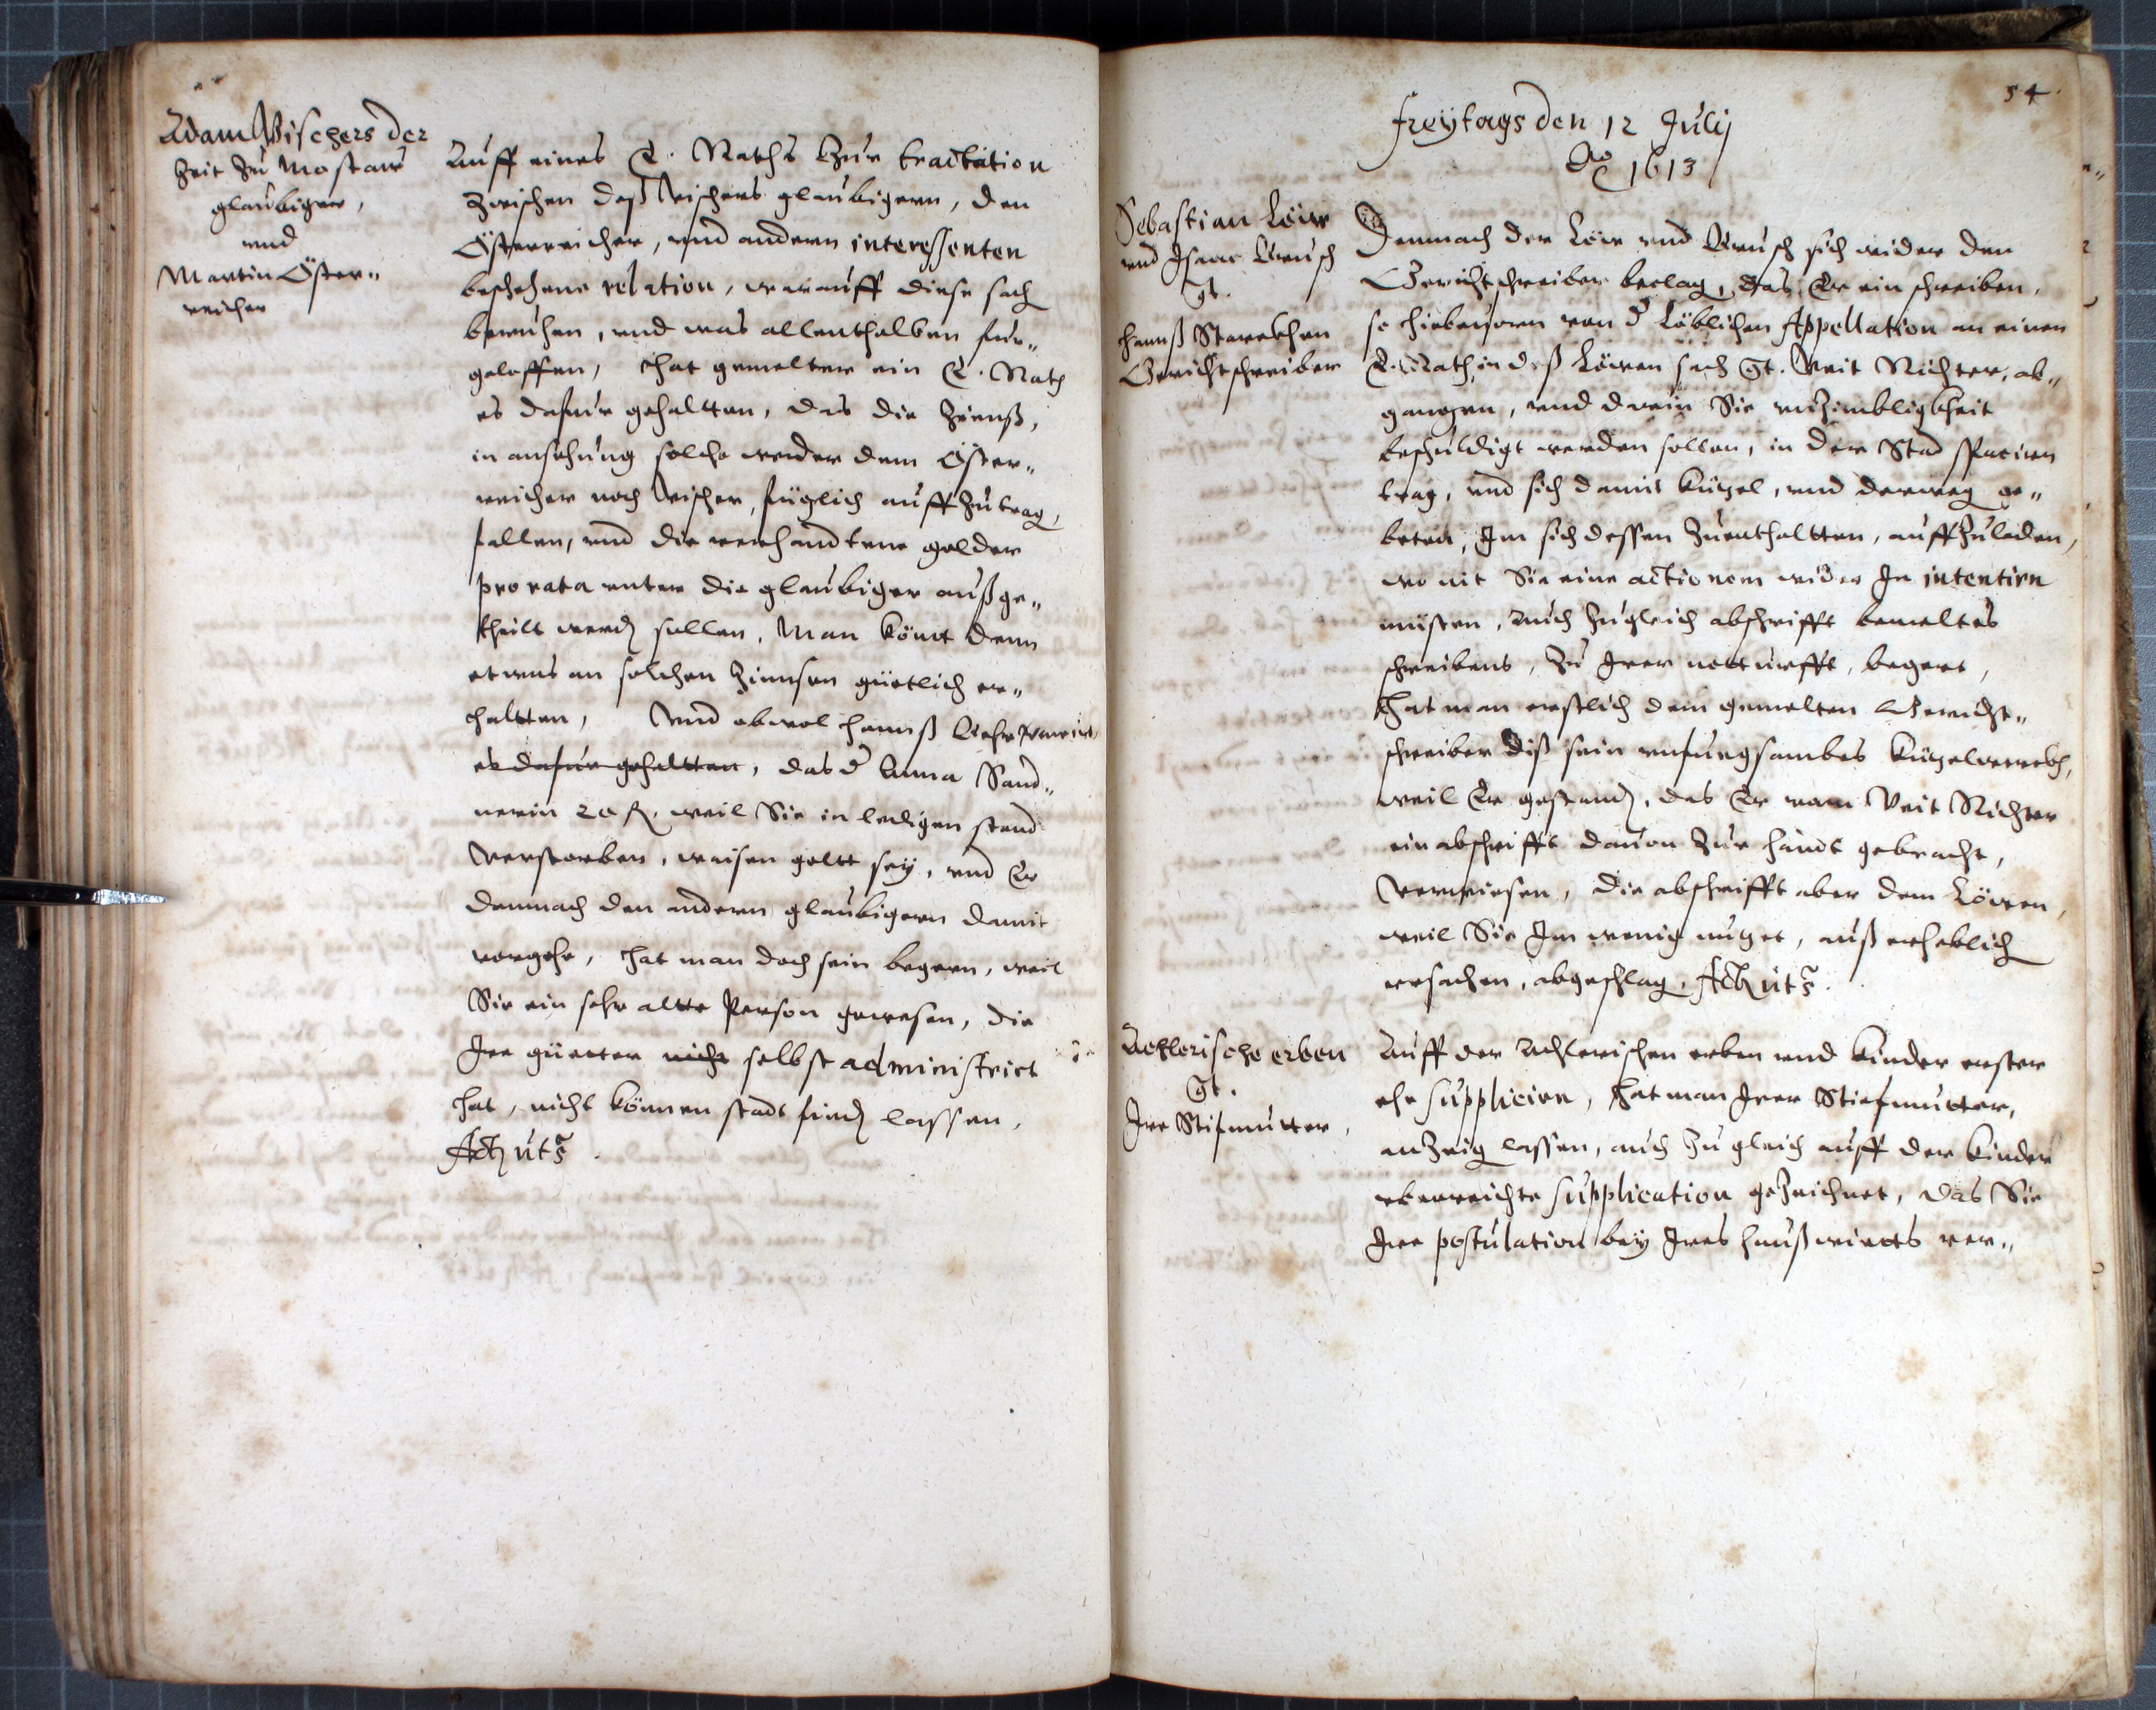 Adam Vischers der
Zeit zu Mostaw
glaubiger,
und
Martin Öster„
reicher
Auff eines E. Raths zur tractation
zwischen deß Vischers glaubigern, den
Österreicher, und andern interessenten
beschehene relation, warauff diese sach
beruhen, und was allenthalben für„
geloffen, hat gemelter ein E. Rath
es dafür gehaltten, das die Zinnß,
in ansehung solche weder dem Öster„
reicher noch Vischer, füglich auffzutrag,
fallen, und die verhandtene gelder
pro rata unter die glaubiger außge„
theilt werden sollen, Man könnt denn
etwas an solchen Zinnsen güetlich er„
haltten, Und obwol Hannß
es dafür gehaltten, das d Anna Sand„
nerin 20 fl. weil Sie in ledigen stand
verstorben, waisen gelt sey, und Er
demnach den andern glaubigern damit
vorgehe, hat man doch sein begern, weil
Sie ein sehr alte Person gewesen, die
Ire güetter nicht selbst administrirt
hat, nicht können stadt finden lassen,
Act. ut s.
54.
Freytags den 12 July
Ao 1613
Sebastian Löw
und Isaac
gt.
Hannß Starckhen
Gerichtschreiber
Demnach der Löw und sich wider den
Gerichtschreiber beclag, das Er ein schreiben,
so hiebevorn von d Löblichen Appellation an einen
E. Rath, in deß Löwen sach gt. Veit Richter, ab„
gangen, und darein Sie unzimbligkheit
beschuldigt werden sollen, in der Stad spacirn
trag, und sich damit kützel, und derweg ge„
beten, Im sich dessen zuenthaltten, auffzuladen,
wo nit Sie eine actionem wider In intentirn
müsten, Auch zugleich abschrifft bemeltes
schreibens, zu Irer notturfft, begert,
Hat man erstlich dem gemelten Gericht„
schreiber diß sein unfuegsambes kützelwerckh,
weil Er gestanden, das Er vom Veit Richter
ein abschrifft davon zur handt gebracht,
verwiesen, die abschrifft aber dem Löwen,
weil Sie Im wenig nutzet, auß erheblich
ursachen, abgeschlag, Act. ut s.
Achlerische erben
gt.
Ire Stifmutter,
Auff der Achlerischen erben und kinder erster
ehe suppliciren, hat man Irer Stiefmutter,
anzeig lassen, auch zu gleich auff der kinder
uberreichte supplication gezeichnet, das Sie
Ire postulation bey Ires Haußwirtts ver„